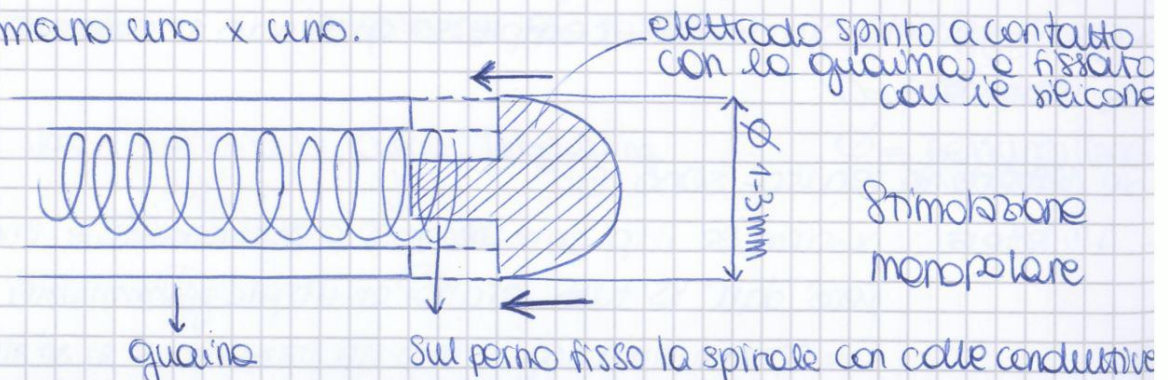 mano uno x uno.
elettrodo spinto a contatto
con la guaina, e fissato
con il silicone
Ø 1-3mm
Stimolazione
monopolare
guaina
sul perno fisso la spirale con colle conduttive